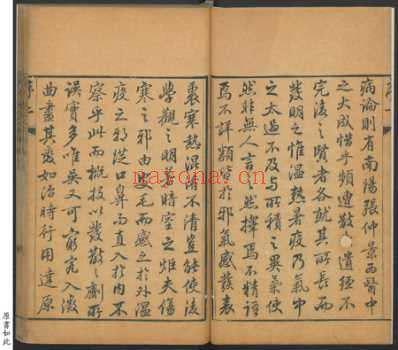 病論則有南陽張仲景西醫中
之大成惜乎頻遭散遺經不
完後之賢者各就其所長而
發明之惟溫熱暑疫乃氣中
之太過不及与所積之異氣使
然非無人言之然擇焉不精語
焉不詳類皆於邪氣感發表
裏寒熱混淆不清豈能使後
學觀之明若暗室之炬夫傷
寒之邪由皮毛而感之於外溫
疫之邪從口鼻而直入於內不
察乎此而概投以發散之劑所
誤實多唯吳又可窮究入微
曲盡其變如治時行用達原
序二
原書如此
nayona.cn